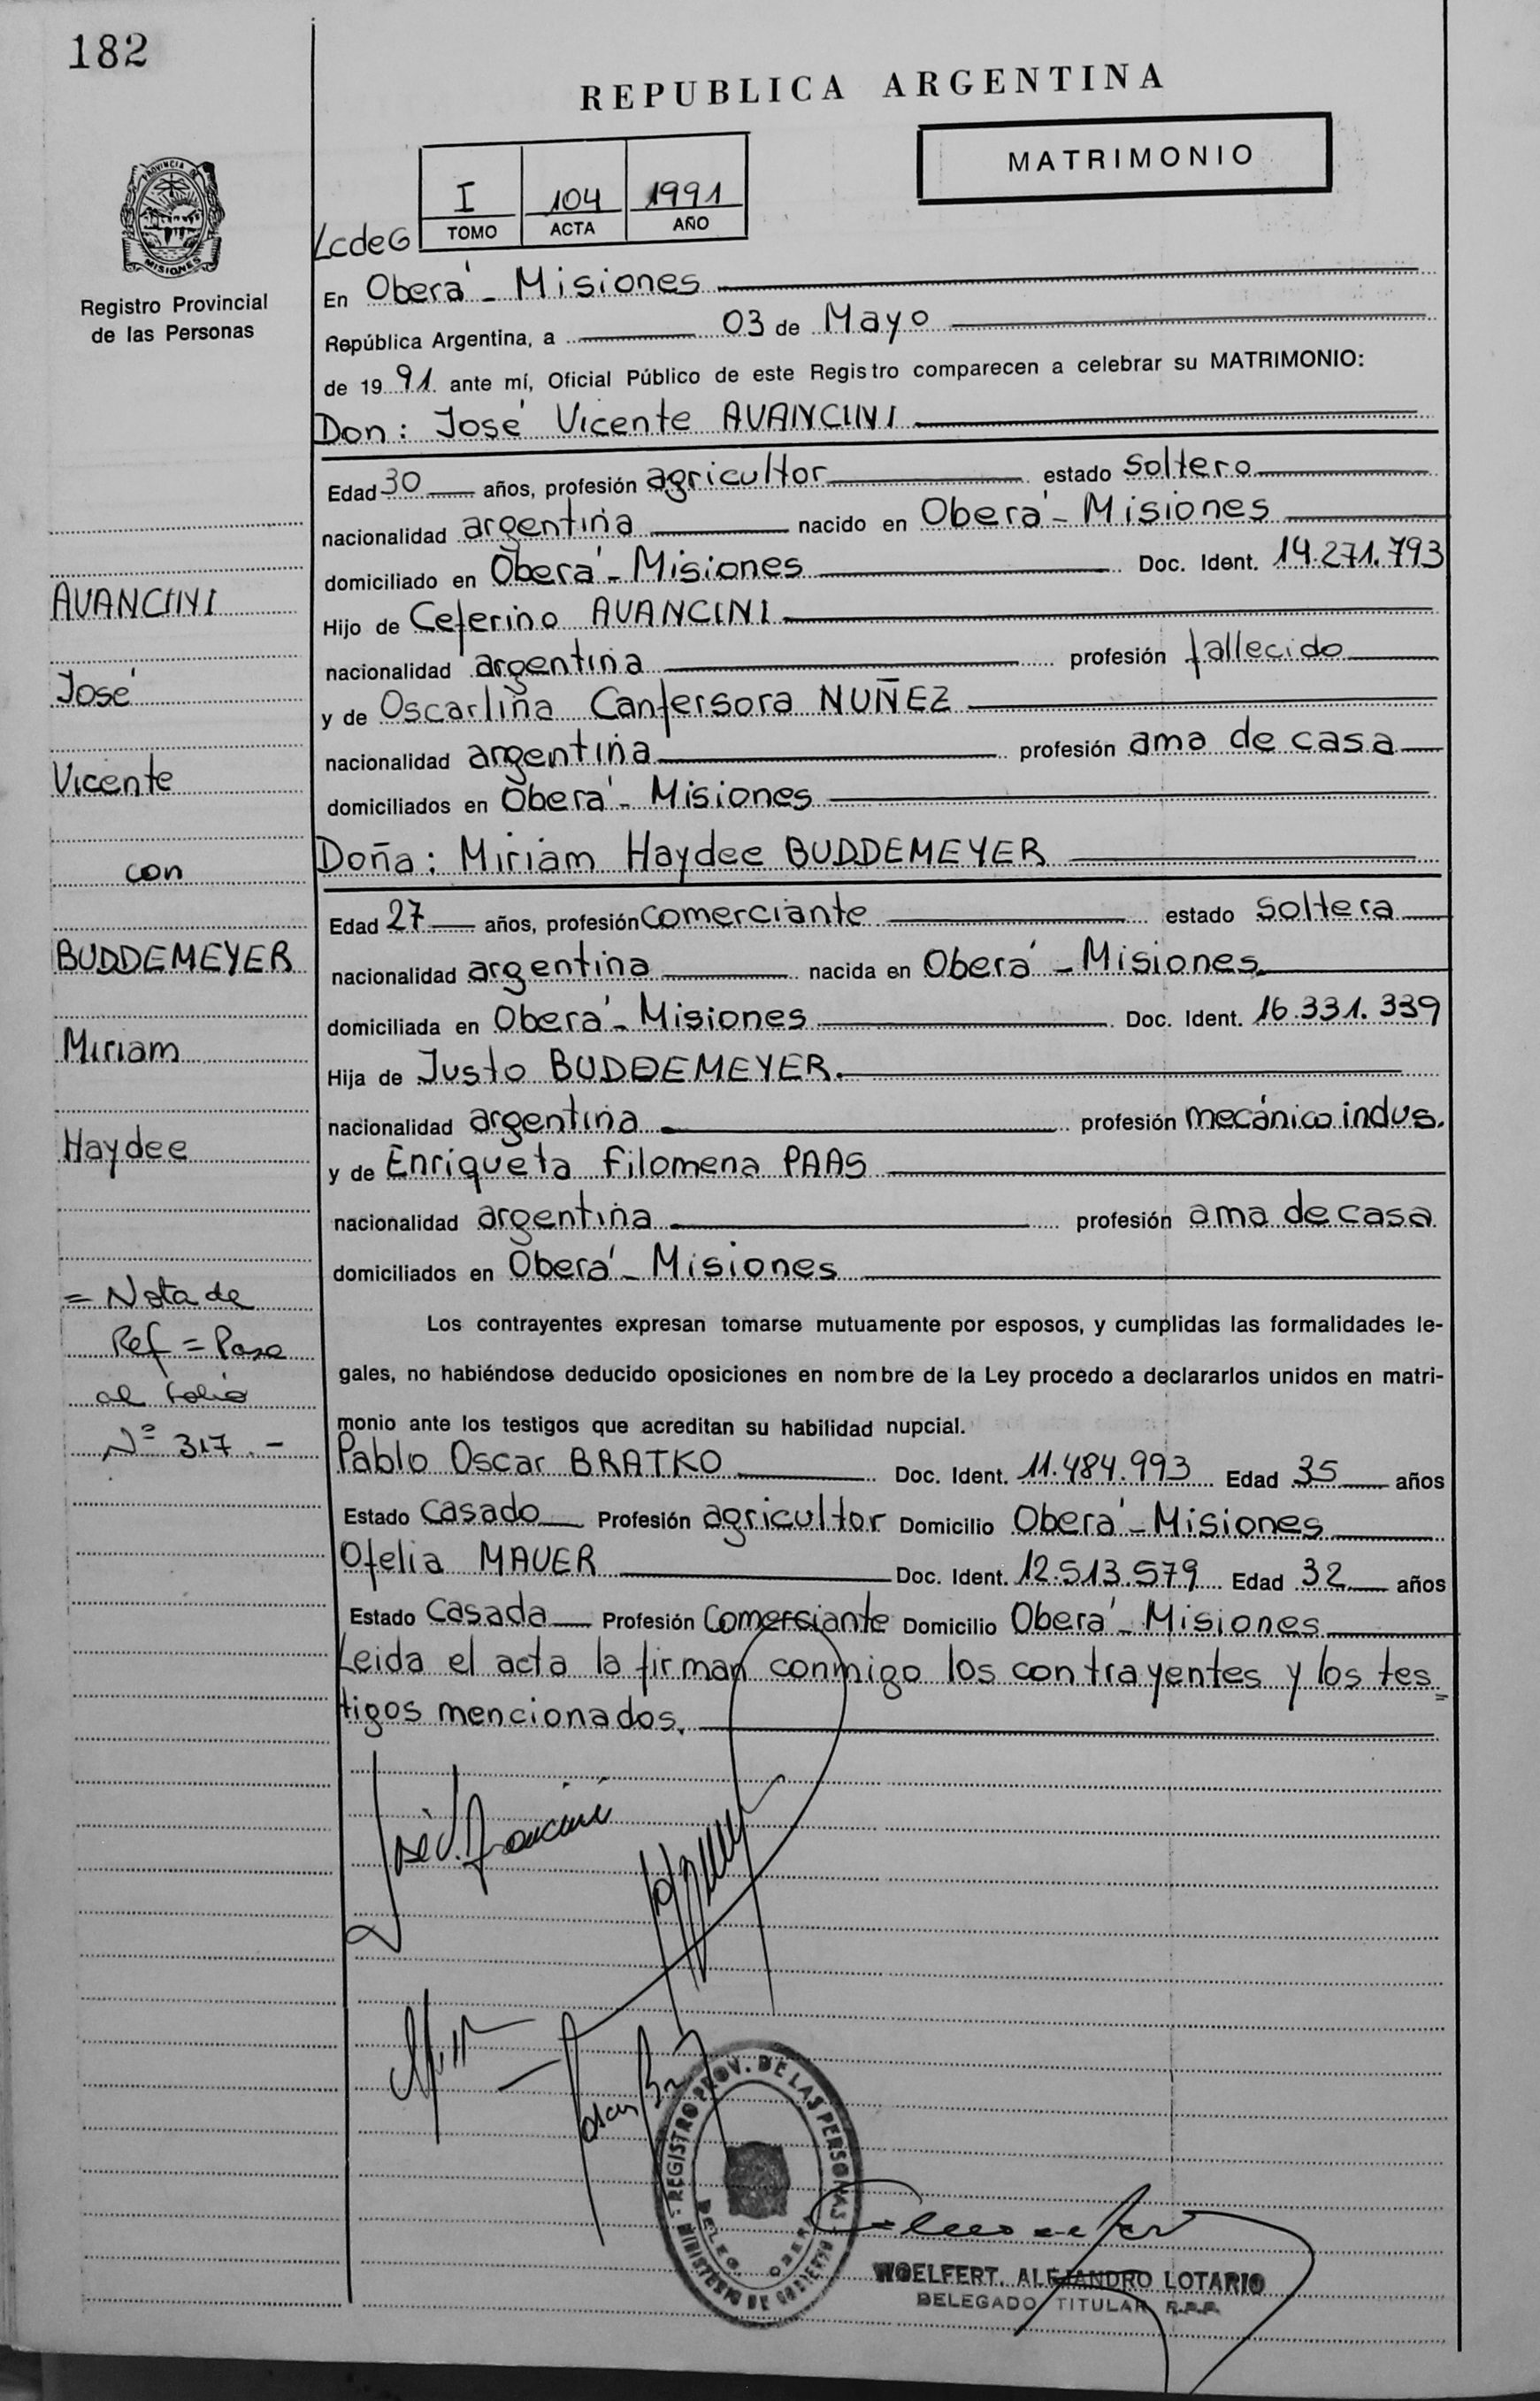 182
REPUBLICA ARGENTINA
MATRIMONIO
I 104 1991
TOMO ACTA AÑO
LcdeG
PROVINCIA DE
MISIONES
Registro Provincial
de las Personas
En Oberá - Misiones
República Argentina, a 03 de Mayo
de 1991 ante mí, Oficial Público de este Registro comparecen a celebrar su MATRIMONIO:
Don: José Vicente AVANCINI
Edad 30 años, profesión agricultor estado soltero
nacionalidad argentina nacido en Oberá - Misiones
domiciliado en Oberá - Misiones Doc. Ident. 14.271.793
Hijo de Ceferino AVANCINI
nacionalidad argentina profesión fallecido
y de Oscarlina Canfersora NUÑEZ
nacionalidad argentina profesión ama de casa
domiciliados en Oberá - Misiones
Doña: Miriam Haydee BUDDEMEYER
Edad 27 años, profesión comerciante estado soltera
nacionalidad argentina nacida en Oberá - Misiones
domiciliada en Oberá - Misiones Doc. Ident. 16.331.339
Hija de Justo BUDDEMEYER.
nacionalidad argentina profesión mecánico indus.
y de Enriqueta Filomena PAAS
nacionalidad argentina profesión ama de casa
domiciliados en Oberá - Misiones
Los contrayentes expresan tomarse mutuamente por esposos, y cumplidas las formalidades le-
gales, no habiéndose deducido oposiciones en nombre de la Ley procedo a declararlos unidos en matri-
monio ante los testigos que acreditan su habilidad nupcial.
Pablo Oscar BRATKO Doc. Ident. 11.484.993 Edad 35 años
Estado casado Profesión agricultor Domicilio Oberá - Misiones
Ofelia MAUER Doc. Ident. 12.513.579 Edad 32 años
Estado casada Profesión comerciante Domicilio Oberá - Misiones
Leida el acta la firman conmigo los contrayentes y los tes=
tigos mencionados.
AVANCINI
José
Vicente
con
BUDDEMEYER
Miriam
Haydee
= Nota de
Ref = Pase
al folio
Nº 317.-
José V. Avancini
REGISTRO PROV. DE LAS PERSONAS
MINISTERIO DE GOBIERNO
DELEG. OBERA
WOELFERT, ALEJANDRO LOTARIO
DELEGADO TITULAR R.P.P.